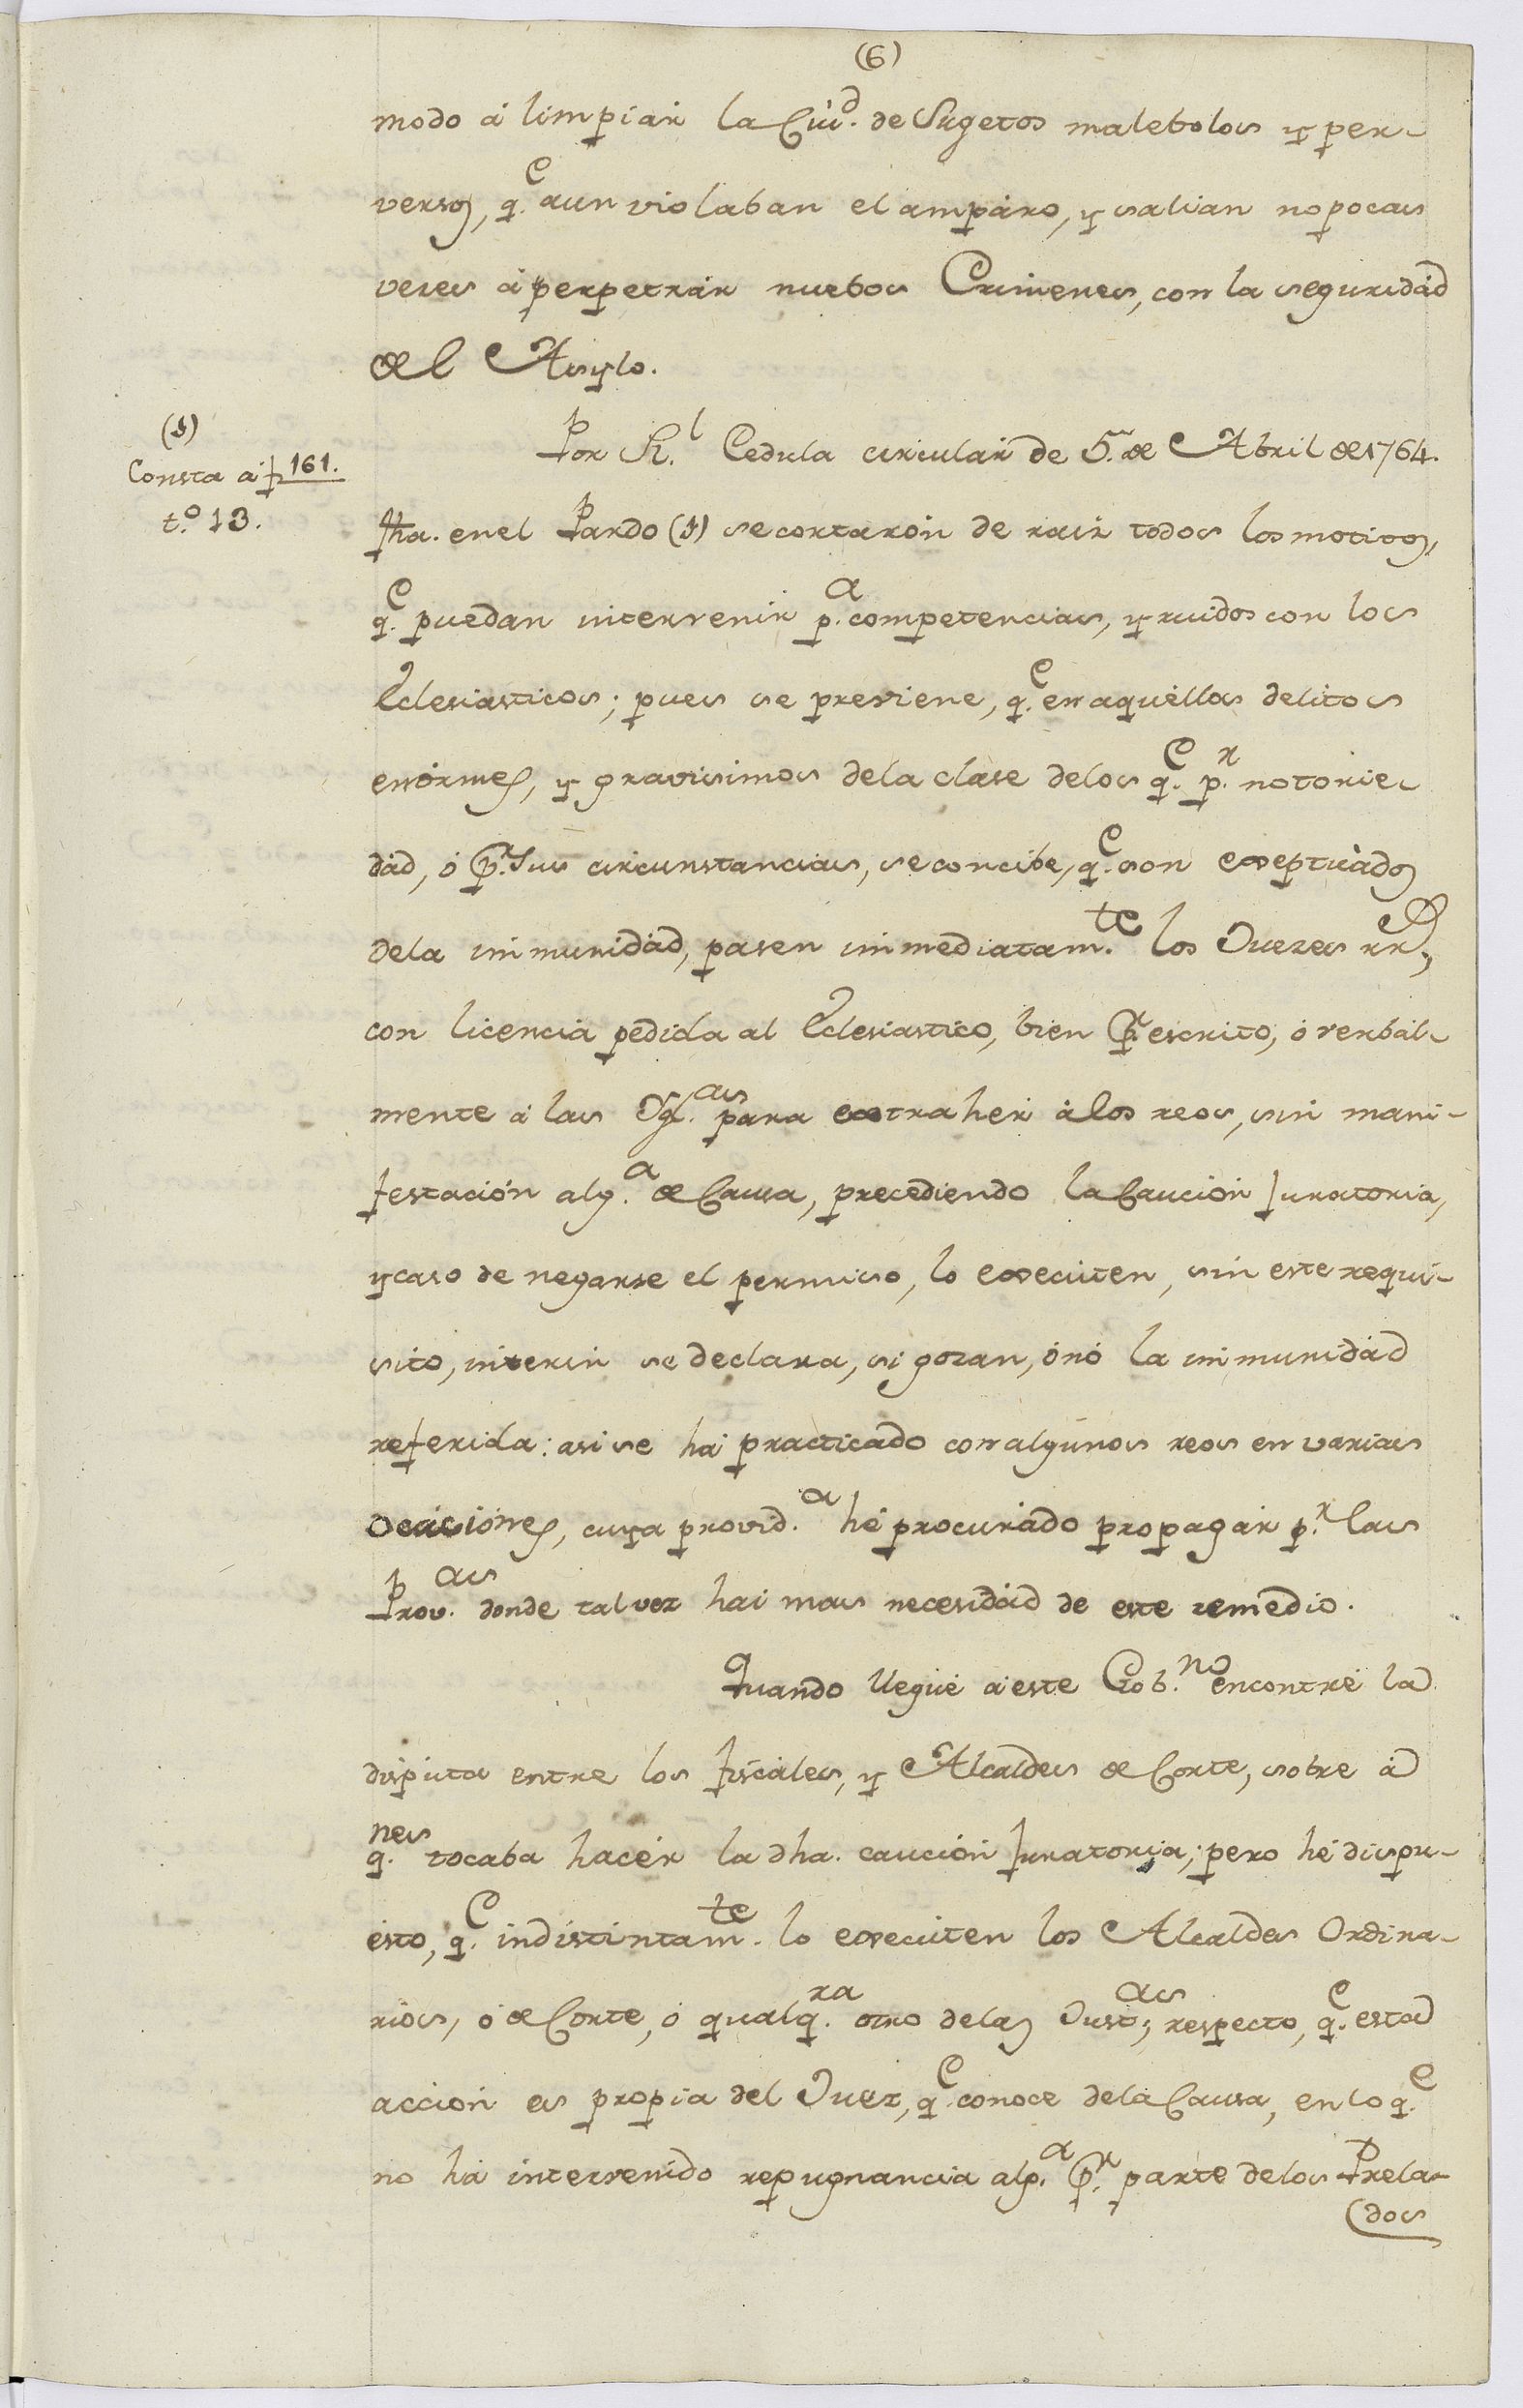 (6)
modo á limpiar la Ciu.d de Sugetos malebolos y per-
versos, q.e aun violaban el amparo, y salian no pocas
veses á perpetrár nuebos Crimenes, con la seguridád
del Asylo.
Por R.l Cedula circulár de 5. de Abril de 1764.
(J)
Consta á f 161.
t.o 13.
fha. en el Pardo (J) se cortarón de rais todos los motivos,
q.e puedan intervenir p.a competencias, y ruidos con los
Eclesiasticos; pues se previene, q.e en aquellos delitos
enórmes, y gravisimos de la clase de los q.e p.r notorie-
dád, ó p.r Sus circunstancias, se concibe, q.e son exeptuados
de la immunidád, pasen immediatam.te los Juezes rr.s,
con licencia pedida al Eclesiastico, bien p.r escrito, ó verbál-
mente á las Ygl.as para extraher á los reos, sin mani-
festación alg.a de Causa, precediendo la Caución juratoria,
y caso de negarse el permiso, lo executen, sin este requi-
sito, interin se declara, si gozan, ó nó la immunidád
referida: asi se há practicado con algunos reos en varias
ocasiónes, cuya provid.a hé procurado propagár p.r las
Prov.as donde tal vez hai mas necesidád de este remedio.
Quando llegué á este Gob.no encontré la
disputa entre los fiscáles, y Alcaldes de Corte, sobre á
q.nes tocaba hacér la dha. caución juratoria; pero hé dispu-
esto, q.e indistintam.te lo executen los Alcaldes Ordina-
rios, ó de Corte, ó qualq.ra otro de las Just.as, respecto, q.e esta
acción es propia del Juez, q.e conoce de la Causa, en lo q.e
no há intervenido repugnancia alg.a p.r parte de los Prela-
dos